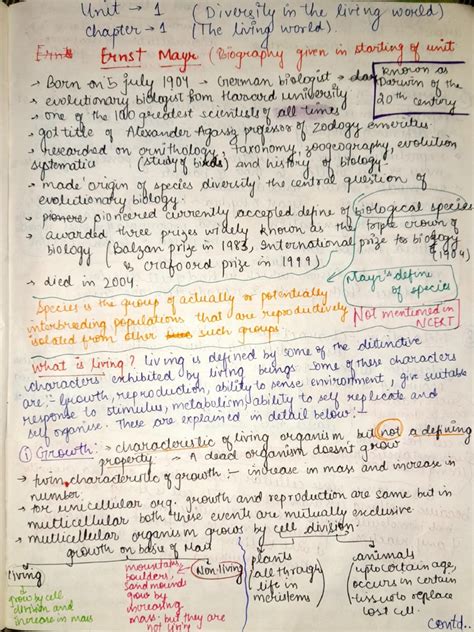 Unit → 1 (Diversity in the living world)
Chapter → 1 (The living world).
Ernst Ernst Mayr (Biography given in starting of unit
→ Born on 5 july 1904 → German biologist →
known as
Darwin of the
20th century
→ evolutionary biologist from Harvard university
→ one of the 100 greatest scientists of all times
→ got title of Alexander Agassiz professor of zoology emeritus.
→ researched on ornithology, taxonomy, zoogeography, evolution
systematics (study of birds) and history of biology.
→ made origin of species diversity the central question of
evolutionary biology.
→ pioneered currently accepted define of biological species
→ awarded three prizes widely known as the triple crown of
biology (Balzan prize in 1983, International prize for biology
& crafoord prize in 1999)
1994)
→ died in 2004.
Mayr's define
of species
Not mentioned in
NCERT
Species is the group of actually or potentially
interbreeding populations that are reproductively
isolated from other such groups
What is living? Living is defined by some of the distinctive
characters exhibited by living beings. Some of these characters
are :- Growth, reproduction, ability to sense environment, give suitable
response to stimulus, metabolism, ability to self replicate and
self organise. These are explained in detail below :-
① Growth :→ characteristic of living organism, but not a defining
property → A dead organism doesn't grow
→ twin characteristic of growth :- increase in mass and increase in
number.
→ for unicellular org. growth and reproduction are same but in
multicellular both these events are mutually exclusive.
→ Multicellular organism grows by cell division.
growth on base of
living
grow by cell
division and
increase in mass
Non-living
mountains,
boulders,
sandmounds
grow by
increasing
mass. but they are
not living
plants
(all through
life in
meristems)
animals
(upto certain age,
occurs in certain
tissue to replace
lost cell.
contd..